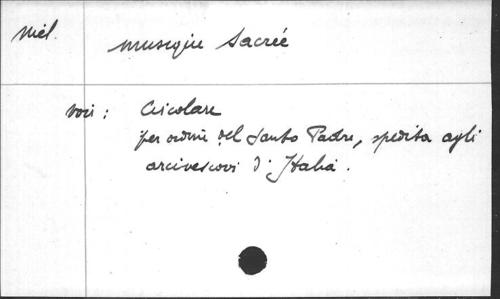 Mél.
Musique Sacrée
voir : Circolare
per ordine del Santo Padre, spedita agli
arcivescovi d'Italia.